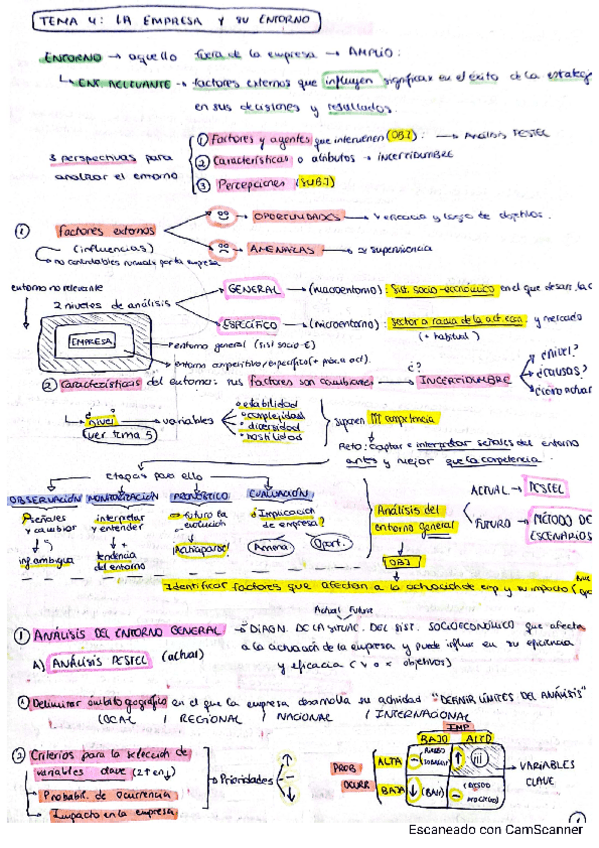 TEMA 4: LA EMPRESA Y SU ENTORNO
ENTORNO → aquello fuera de la empresa → AMPLIO:
ENT. RELEVANTE → factores externos que influyen significat. en el éxito de la estrategia
en sus decisiones y resultados.
3 perspectivas para analizar el entorno
① Factores y agentes que intervienen (OBJ): → Análisis PESTEL
② Características o atributos → INCERTIDUMBRE
③ Percepciones (SUBJ)
① factores externos
(influencias)
no controlables normalm. por la empresa
→ OPORTUNIDADES → y logro de objetivos.
→ AMENAZAS → supervivencia
entorno no relevante
2 niveles de análisis
GENERAL → (macroentorno): sist. socio-económico en el que desarr. la
ESPECÍFICO → (microentorno): sector o rama de la act. econ. y mercado
(+ habitual)
EMPRESA
entorno general (sist socio-E)
entorno competitivo/específico (+ próx. a act.)
② Características del entorno: sus factores son cambiantes → INCERTIDUMBRE
¿?
¿nivel?
¿causas?
¿cómo actuar
¿nivel? → variables
(ver tema 5)
estabilidad
complejidad
diversidad
hostilidad
Suponen ↑↑↑ competencia
Reto: Captar e interpretar señales del entorno
antes y mejor que la competencia
Etapas para ello
OBSERVACIÓN MONITORIZACIÓN PRONÓSTICO EVALUACIÓN
señales y cambiar
inf. ambigua
interpretar y entender
+
tendencia del entorno
futuro la evolución
¡Anticiparse!
¿Implicación de empresa?
Amena. Oport.
Análisis del entorno general
ACTUAL → PESTEL
FUTURO → MÉTODO DE ESCENARIOS
OBJ
Identificar factores que afectan a la actuación de emp y su impacto
Actual Future
① ANÁLISIS DEL ENTORNO GENERAL → DIAGN. DE LA SITUAC. DEL SIST. SOCIOECONÓMICO que afecta
a la actuación de la empresa y puede influir en su eficiencia
y eficacia ( objetivos)
A) ANÁLISIS PESTEL (actual)
① Delimitar ámbito geográfico en el que la empresa desarrolla su actividad "DEFINIR LÍMITES DEL ANÁLISIS"
LOCAL / REGIONAL / NACIONAL / INTERNACIONAL
② Criterios para la selección de variables clave
Probabil. de ocurrencia
Impacto en la empresa
→ Prioridades
↑
−
↓
IMP
BAJO ALTO
PROB OCURR
ALTA
BAJA
(BAJA)
→ VARIABLES CLAVE
Escaneado con CamScanner